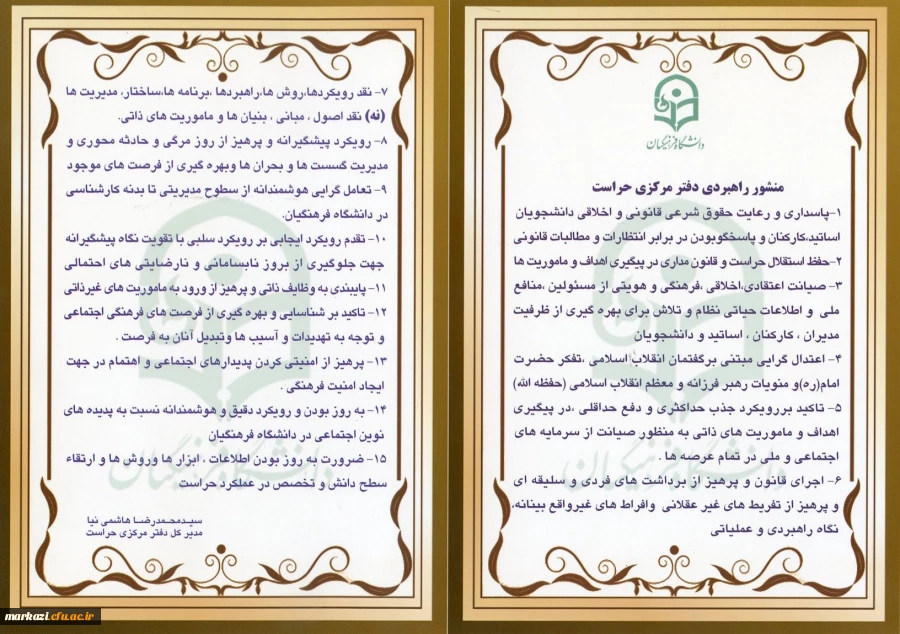 دانشگاه فرهنگیان
منشور راهبردی دفتر مرکزی حراست
۱-پاسداری و رعایت حقوق شرعی قانونی و اخلاقی دانشجویان
اساتید،کارکنان و پاسخگوبودن در برابر انتظارات و مطالبات قانونی
۲-حفظ استقلال حراست و قانون مداری در پیگیری اهداف و ماموریت ها
۳- صیانت اعتقادی،اخلاقی ،فرهنگی و هویتی از مسئولین ،منافع
ملی و اطلاعات حیاتی نظام و تلاش برای بهره گیری از ظرفیت
مدیران ، کارکنان ، اساتید و دانشجویان
۴- اعتدال گرایی مبتنی برگفتمان انقلاب اسلامی ،تفکر حضرت
امام(ره)و منویات رهبر فرزانه و معظم انقلاب اسلامی (حفظه الله)
۵- تاکید بررویکرد جذب حداکثری و دفع حداقلی ،در پیگیری
اهداف و ماموریت های ذاتی به منظور صیانت از سرمایه های
اجتماعی و ملی در تمام عرصه ها .
۶- اجرای قانون و پرهیز از برداشت های فردی و سلیقه ای
و پرهیز از تفریط های غیر عقلانی وافراط های غیرواقع بینانه،
نگاه راهبردی و عملیاتی
دانشگاه فرهنگیان
۷- نقد رویکردها،روش ها،راهبردها ،برنامه ها،ساختار، مدیریت ها
(نه) نقد اصول ، مبانی ، بنیان ها و ماموریت های ذاتی.
۸- رویکرد پیشگیرانه و پرهیز از روز مرگی و حادثه محوری و
مدیریت گسست ها و بحران ها وبهره گیری از فرصت های موجود
۹- تعامل گرایی هوشمندانه از سطوح مدیریتی تا بدنه کارشناسی
در دانشگاه فرهنگیان.
۱۰- تقدم رویکرد ایجابی بر رویکرد سلبی با تقویت نگاه پیشگیرانه
جهت جلوگیری از بروز نابسامانی و نارضایتی های احتمالی
۱۱- پایبندی به وظایف ذاتی و پرهیز از ورود به ماموریت های غیرذاتی
۱۲- تاکید بر شناسایی و بهره گیری از فرصت های فرهنگی اجتماعی
و توجه به تهدیدات و آسیب ها وتبدیل آنان به فرصت .
۱۳- پرهیز از امنیتی کردن پدیدارهای اجتماعی و اهتمام در جهت
ایجاد امنیت فرهنگی .
۱۴- به روز بودن و رویکرد دقیق و هوشمندانه نسبت به پدیده های
نوین اجتماعی در دانشگاه فرهنگیان
۱۵- ضرورت به روز بودن اطلاعات ، ابزار ها وروش ها و ارتقاء
سطح دانش و تخصص در عملکرد حراست
دانشگاه فرهنگیان
سیدمحمدرضا هاشمی نیا
مدیر کل دفتر مرکزی حراست
markazi.cfu.ac.ir